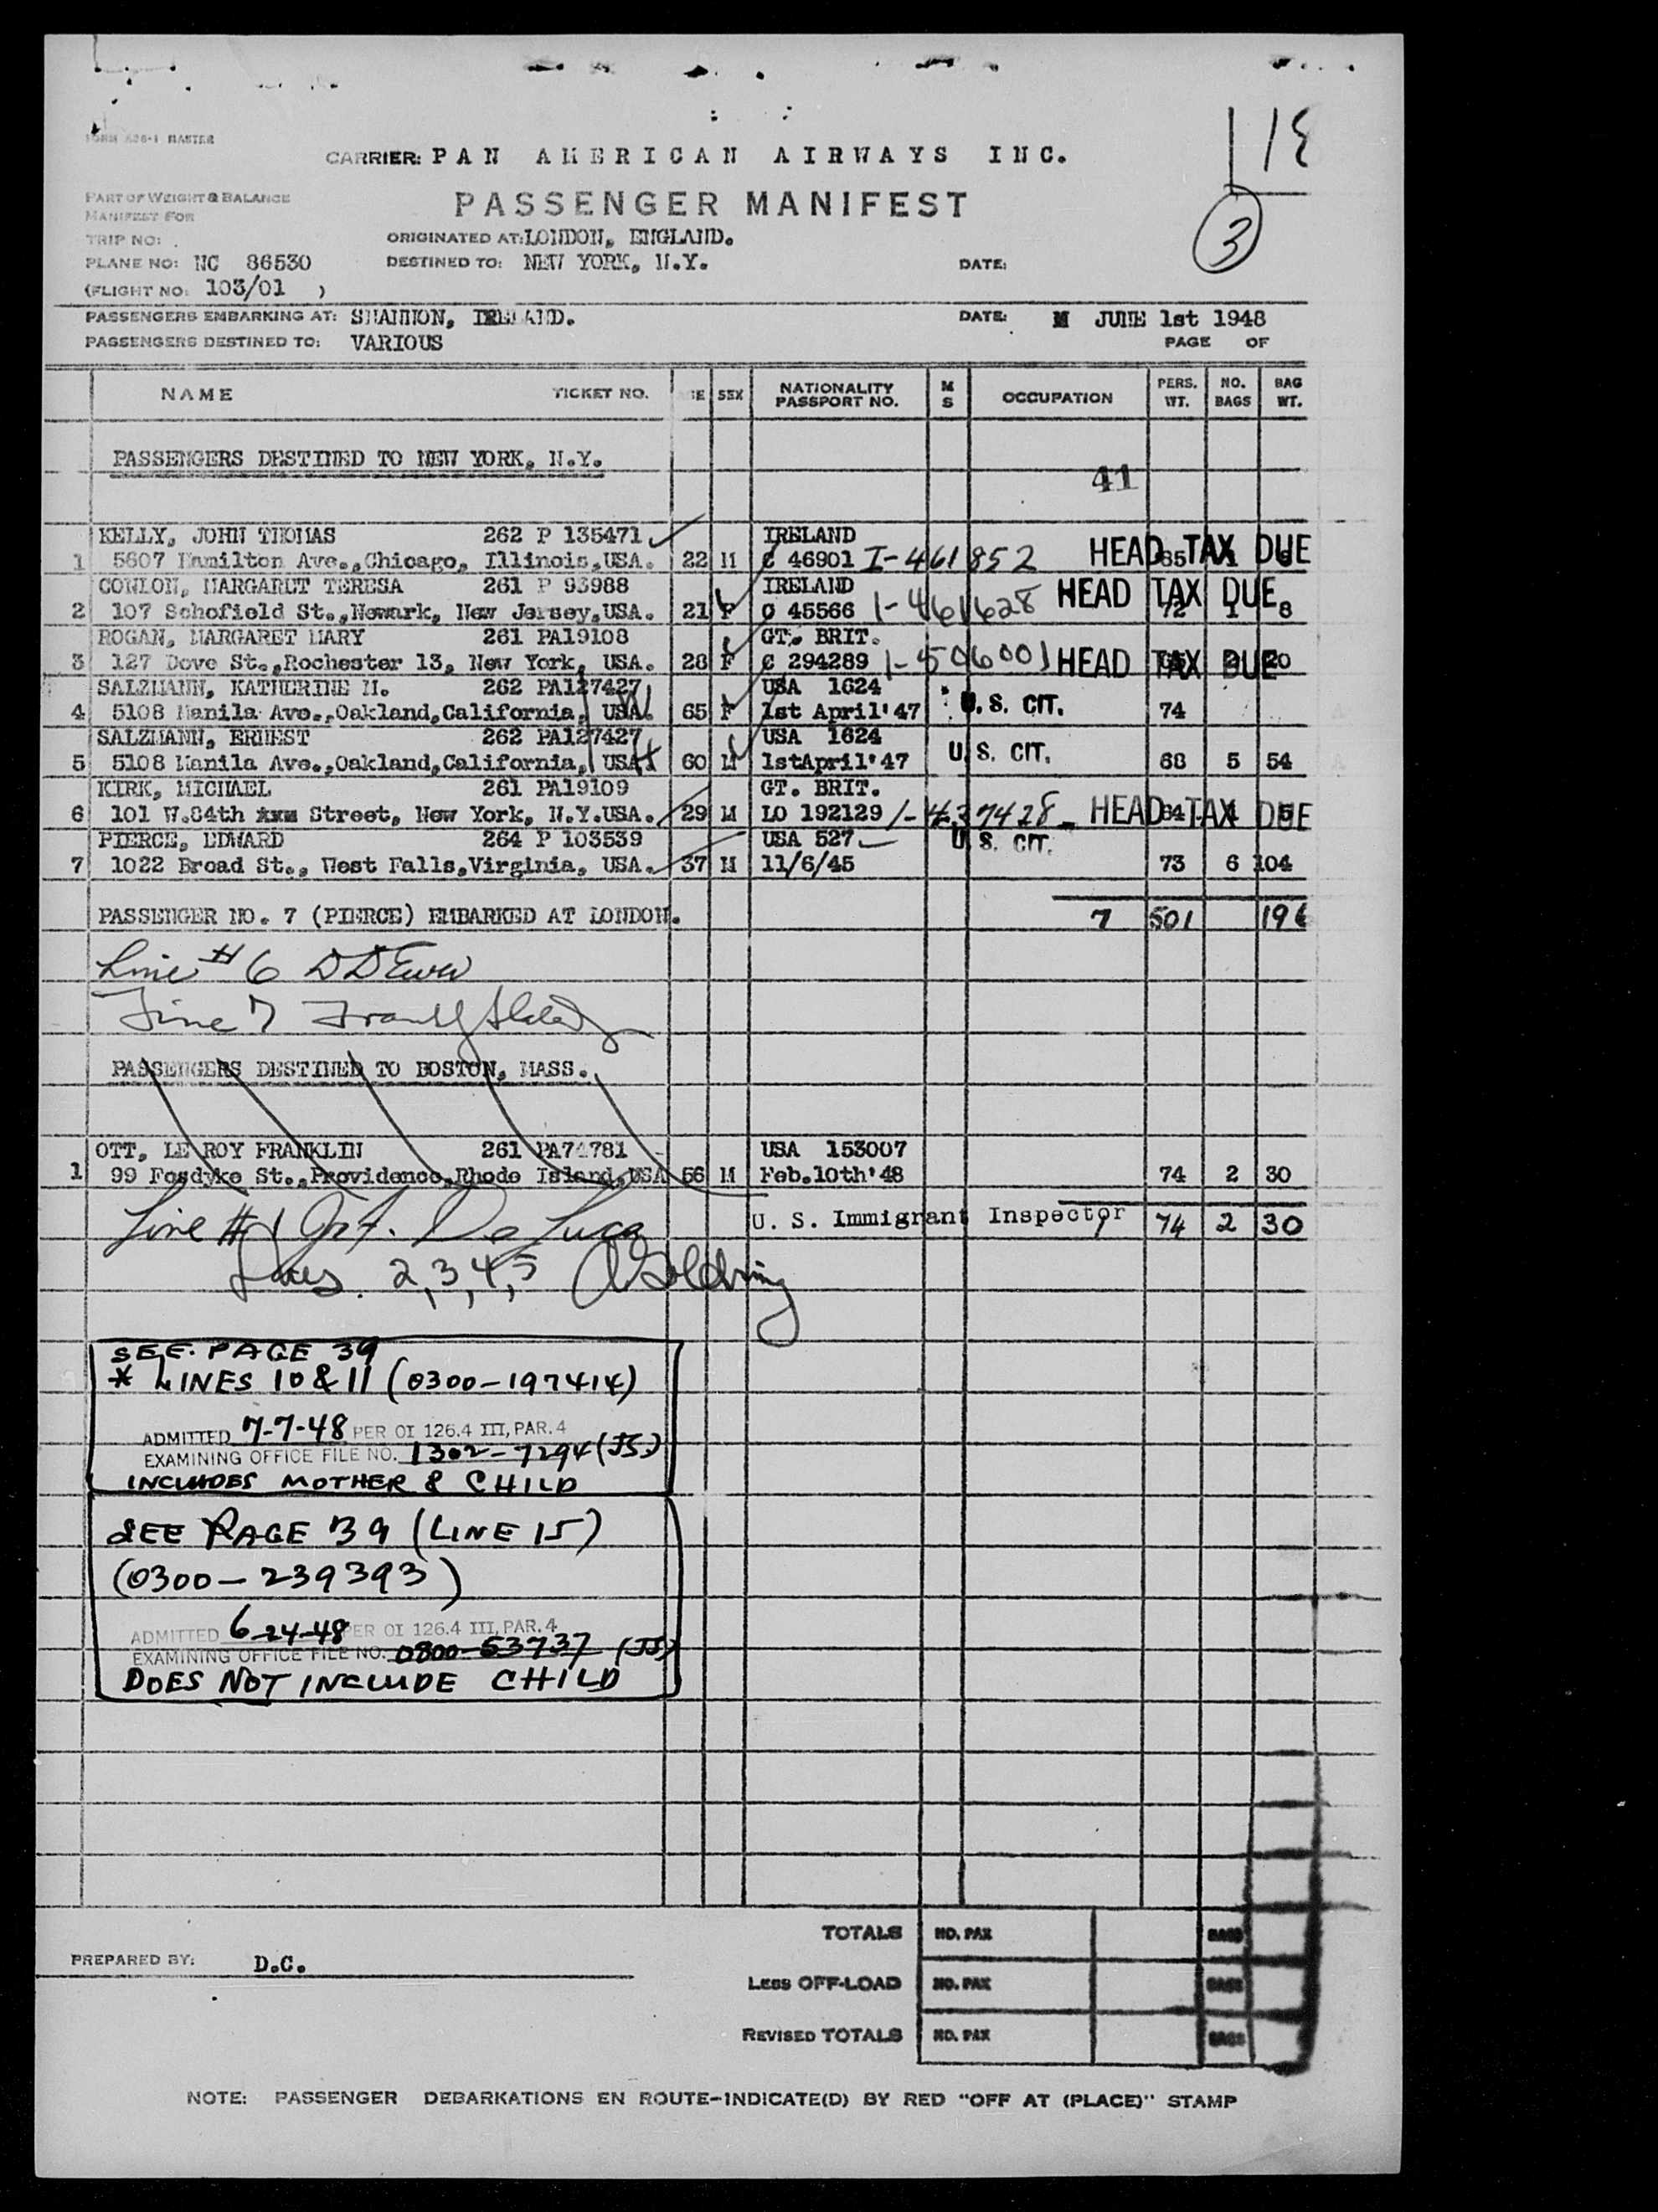 FORM 626-1 MASTER
CARRIER: PAN AMERICAN AIRWAYS INC.
118
PART OF WEIGHT & BALANCE
MANIFEST FOR
PASSENGER MANIFEST
3
TRIP NO:
ORIGINATED AT: LONDON, ENGLAND.
PLANE NO: NC 86530 DESTINED TO: NEW YORK, N.Y. DATE:
(FLIGHT NO: 103/01 )
PASSENGERS EMBARKING AT: SHANNON, IRELAND. DATE: JUNE 1st 1948
PASSENGERS DESTINED TO: VARIOUS PAGE OF
NAME TICKET NO. SEX NATIONALITY PASSPORT NO. M S OCCUPATION PERS. WT. NO. BAGS BAG WT.
PASSENGERS DESTINED TO NEW YORK, N.Y.
41
KELLY, JOHN THOMAS 262 P 135471 IRELAND
1 5607 Hamilton Ave.,Chicago, Illinois,USA. 22 M C 46901 I-461852 HEAD TAX DUE
CONLON, MARGARET TERESA 261 P 93988 IRELAND
2 107 Schofield St.,Newark, New Jersey,USA. 21 F C 45566 1-461628 HEAD TAX DUE 72 1 8
ROGAN, MARGARET MARY 261 PA19108 GT. BRIT.
3 127 Dove St.,Rochester 13, New York, USA. 28 F C 294289 1-506001 HEAD TAX DUE 20
SALZMANN, KATHERINE M. 262 PA127427 USA 1624
4 5108 Manila Ave.,Oakland,California, USA. 65 F 1st April'47 U.S. CIT. 74
SALZMANN, ERNEST 262 PA127427 USA 1624
5 5108 Manila Ave.,Oakland,California, USA 60 M 1stApril'47 U.S. CIT. 68 5 54
KIRK, MICHAEL 261 PA19109 GT. BRIT.
6 101 W.84th Street, New York, N.Y.USA. 29 M LO 192129 1-437428 HEAD TAX DUE
PIERCE, EDWARD 264 P 103539 USA 527 U.S. CIT.
7 1022 Broad St., West Falls,Virginia, USA. 37 M 11/6/45 73 6 104
PASSENGER NO. 7 (PIERCE) EMBARKED AT LONDON. 7 501 196
Line #6
Line 7
PASSENGERS DESTINED TO BOSTON, MASS.
OTT, LE ROY FRANKLIN 261 PA74781 USA 153007
1 99 Fosdyke St.,Providence,Rhode Island,USA 56 M Feb.10th'48 74 2 30
U. S. Immigrant Inspector 1 74 2 30
Line #1 De Luca
Lines 2,3,4,5
SEE PAGE 39
* LINES 10 & 11 (0300-197414)
ADMITTED 7-7-48 PER OI 126.4 III, PAR. 4
EXAMINING OFFICE FILE NO. 1302-7294 (JS)
INCLUDES MOTHER & CHILD
SEE PAGE 39 (LINE 15)
(0300-239393)
ADMITTED 6-24-48 PER OI 126.4 III, PAR. 4
EXAMINING OFFICE FILE NO. 0800-53737 (JS)
DOES NOT INCLUDE CHILD
TOTALS NO. PAX BAGS
PREPARED BY: D.C.
LESS OFF-LOAD NO. PAX BAGS
REVISED TOTALS NO. PAX BAGS
NOTE: PASSENGER DEBARKATIONS EN ROUTE-INDICATE(D) BY RED "OFF AT (PLACE)" STAMP